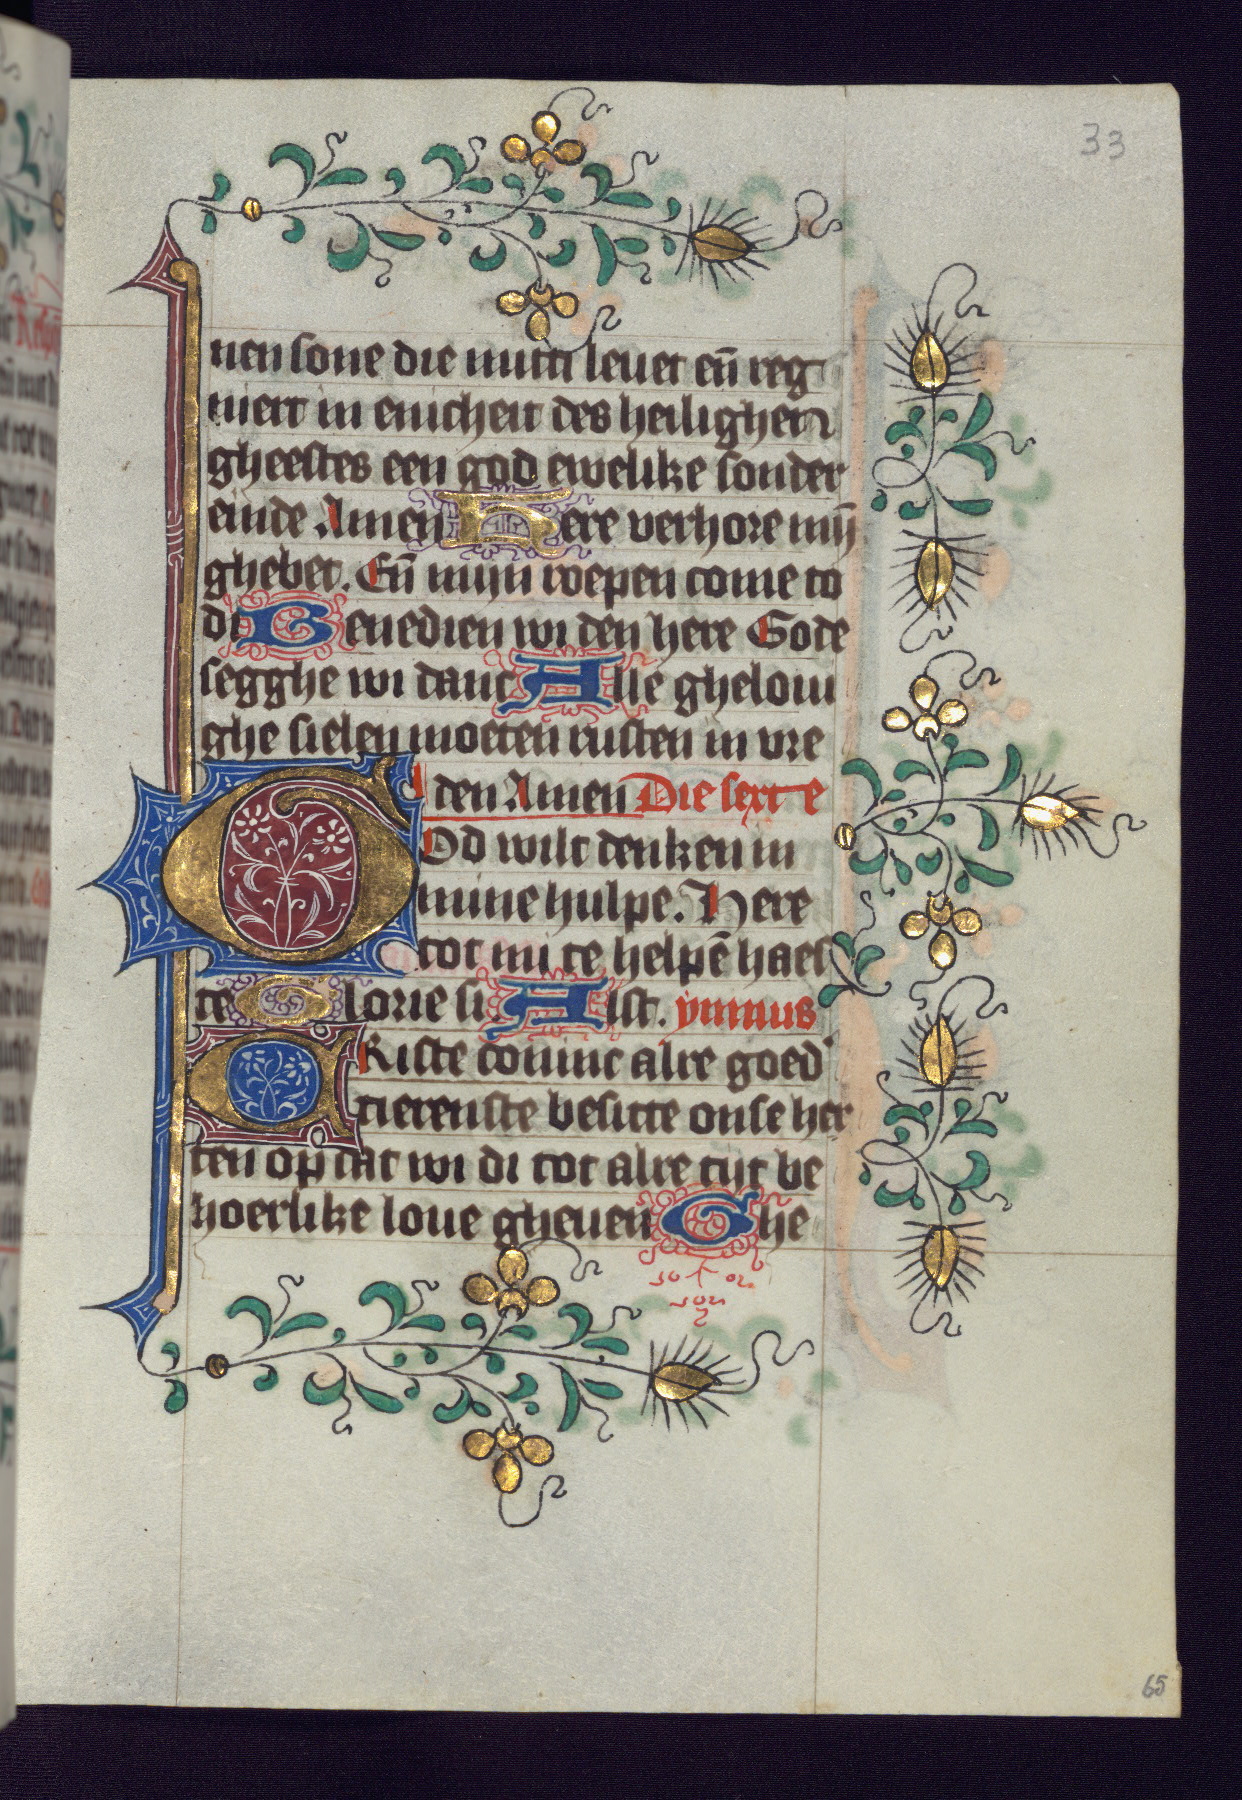 33
nen sone die mitti leuet eñ reg
niert in enicheit des heilighen
gheestes een god ewelike sonder
einde Amen Here verhore mijn
ghebet. Eñ mijn roepen come to
di Benedien wi den here Gode
segghe wi danc Alle gheloui
ghe sielen moeten rusten in vre
den Amen Die sexte
God wilt denken in
mine hulpe. Here
tot mi te helpē haes
te Glorie si Alst. ymnus
Kriste coninc alre goed
tierenste besitte onse her
ten op tat wi di tot alre tijt be
hoerlike loue gheuen Ghe
65